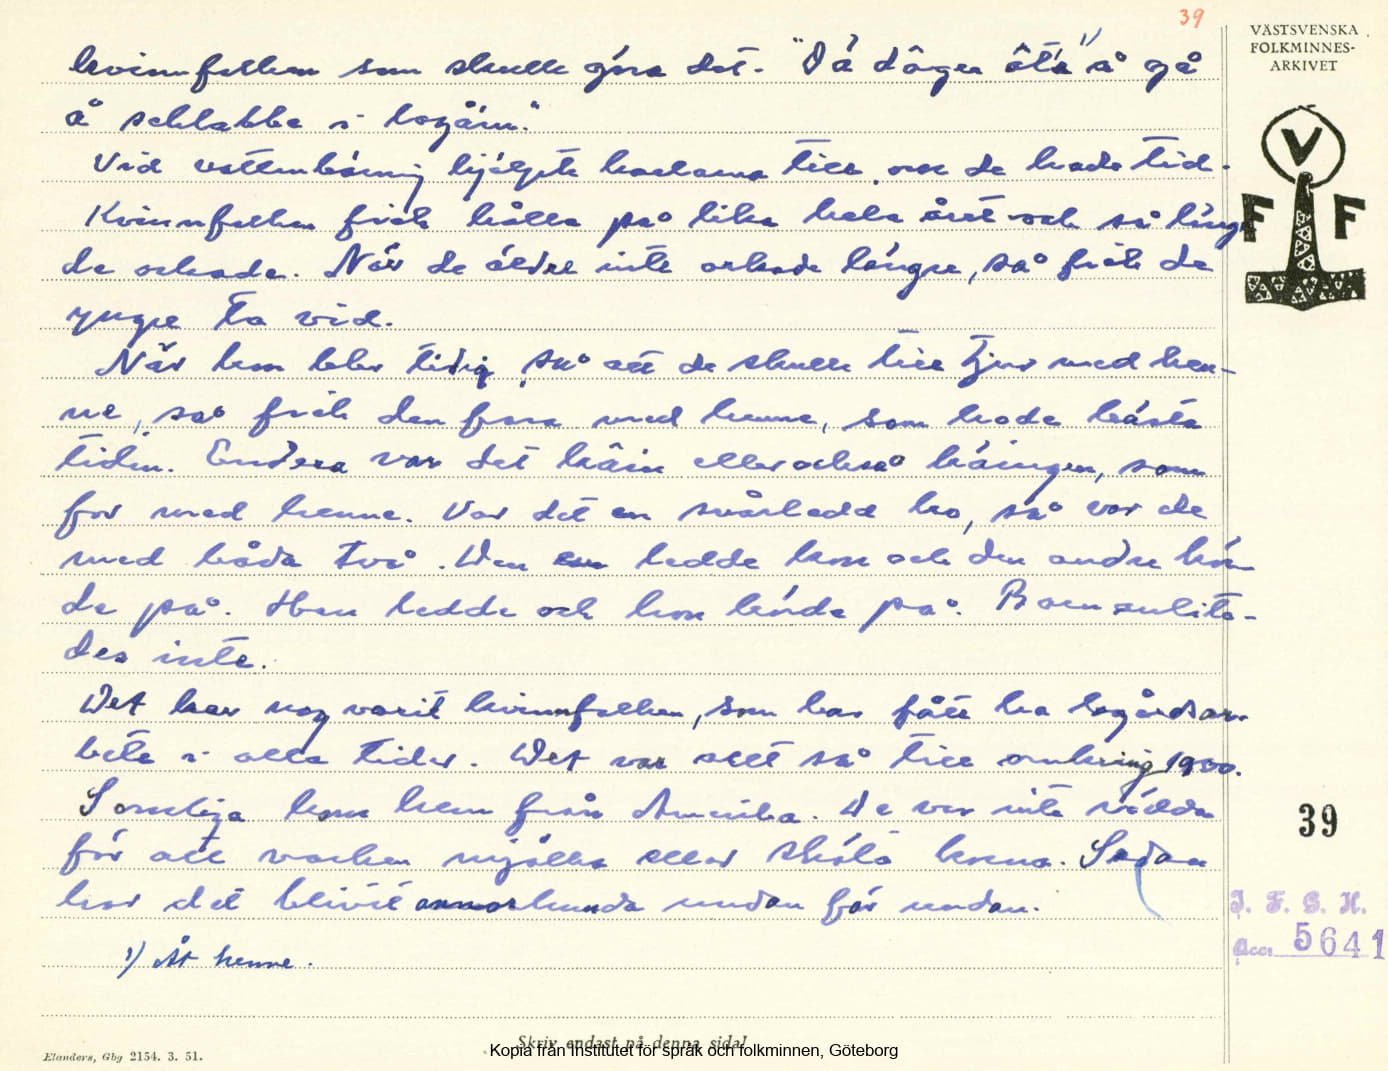 39
VÄSTSVENSKA
FOLKMINNES-
ARKIVET
kvinnfolken som skulle göra det. "Dä döger åt'a¹⁾ å gå
å schlabbe i logärn."
Vid vattenbäring hjälpte karlarna till, om de hade tid.
Kvinnfolken fick hålla på lika hela året och så länge
de orkade. När de äldre inte orkade längre, så fick de
yngre ta vid.
När kon blev tidig, så att de skulle till tjur med hen-
ne, så fick den fara med henne, som hade bästa
tiden. Endera var det käin eller också käingen, som
for med henne. Var det en svårledd ko, så var de
med båda två. Den ene ledde kon och den andre kör-
de på. Han ledde och hon körde på. Barn anlita-
des inte.
Det har nog varit kvinnfolken, som har fått ha logårdsar-
bete i alla tider. Det var allt så till omkring 1900.
Somliga kom hem från Amerika. De var inte rädda
för att varken mjölka eller sköta korna. Sedan
har det blivit annorlunda undan för undan.
1) Åt henne.
V
F F
39
I. F. G. H.
Acc. 5641
Skriv endast på denna sida!
Kopia från Institutet för språk och folkminnen, Göteborg
Elanders, Gbg 2154. 3. 51.